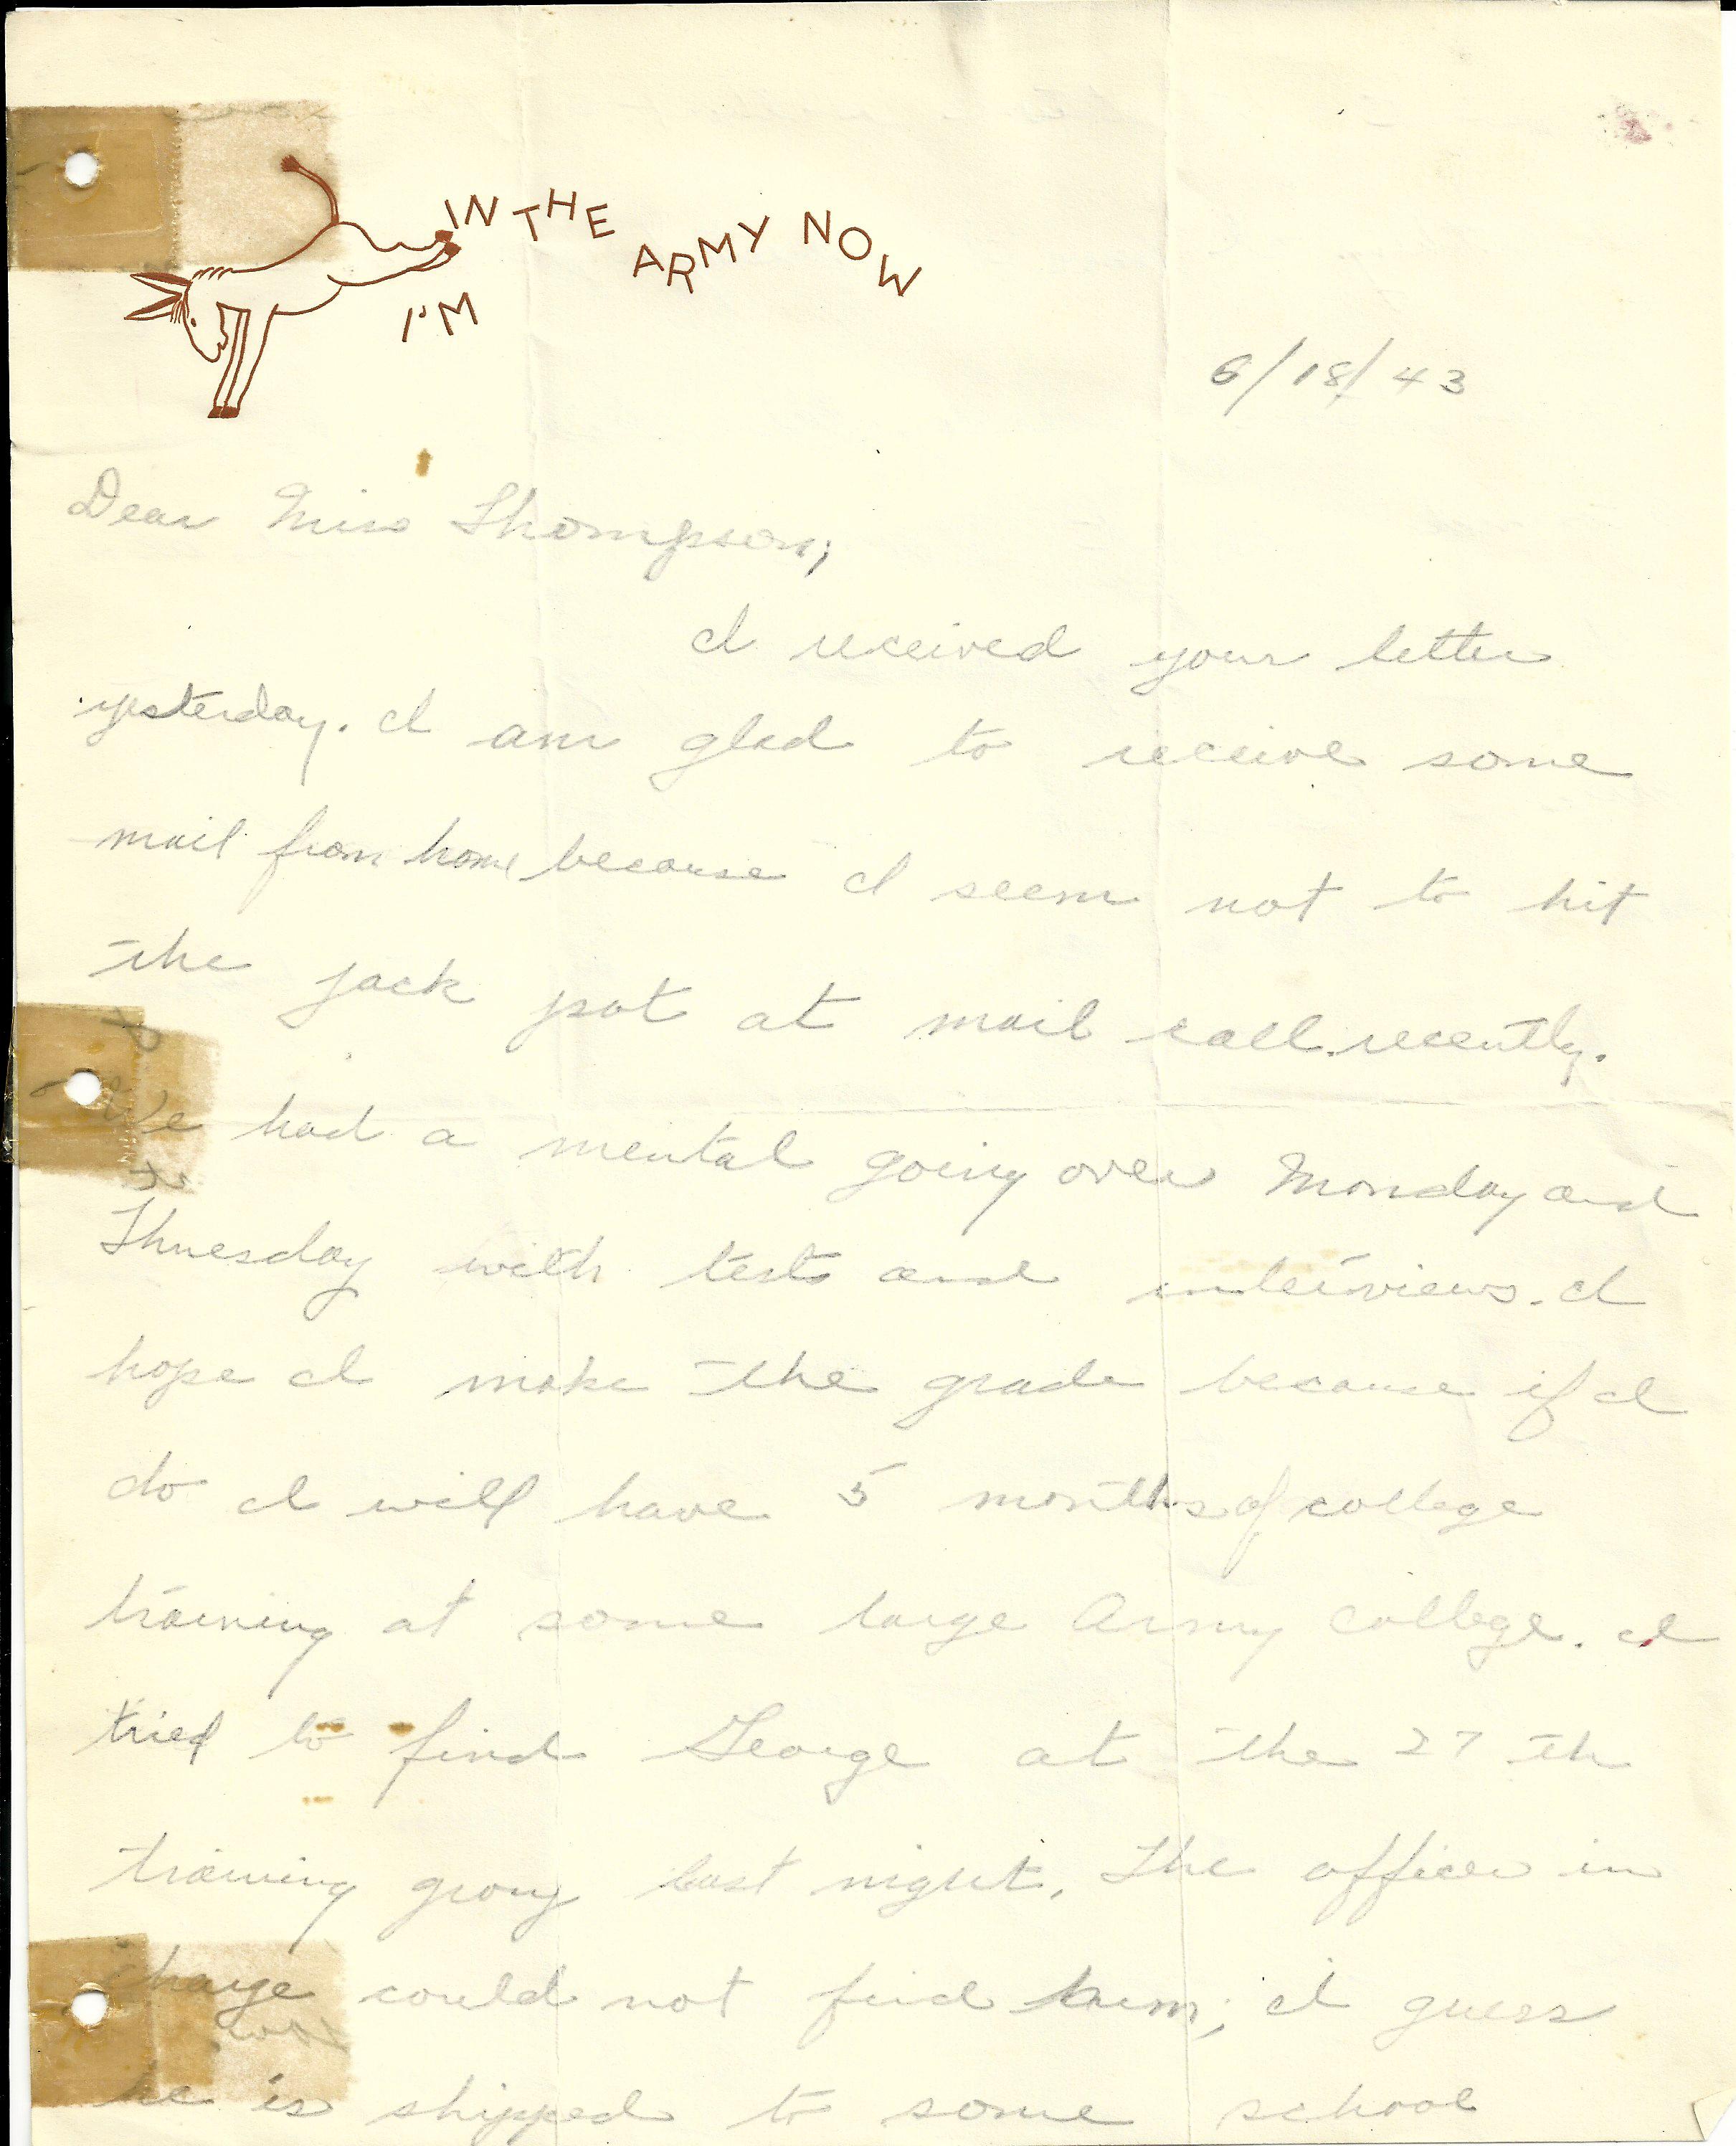 I'M IN THE ARMY NOW
6/18/43
Dear Miss Thompson;
I received your letter
yesterday. I am glad to receive some
mail from home because I seem not to hit
the jack pot at mail call recently.
We had a mental going over Monday and
Thuesday with tests and interviews. I
hope I make the grade because if I
do I will have 5 months of college
training at some large Army College. I
tried to find George at the 27 th
training group last night. The officer in
charge could not find him; I guess
he is shipped to some school